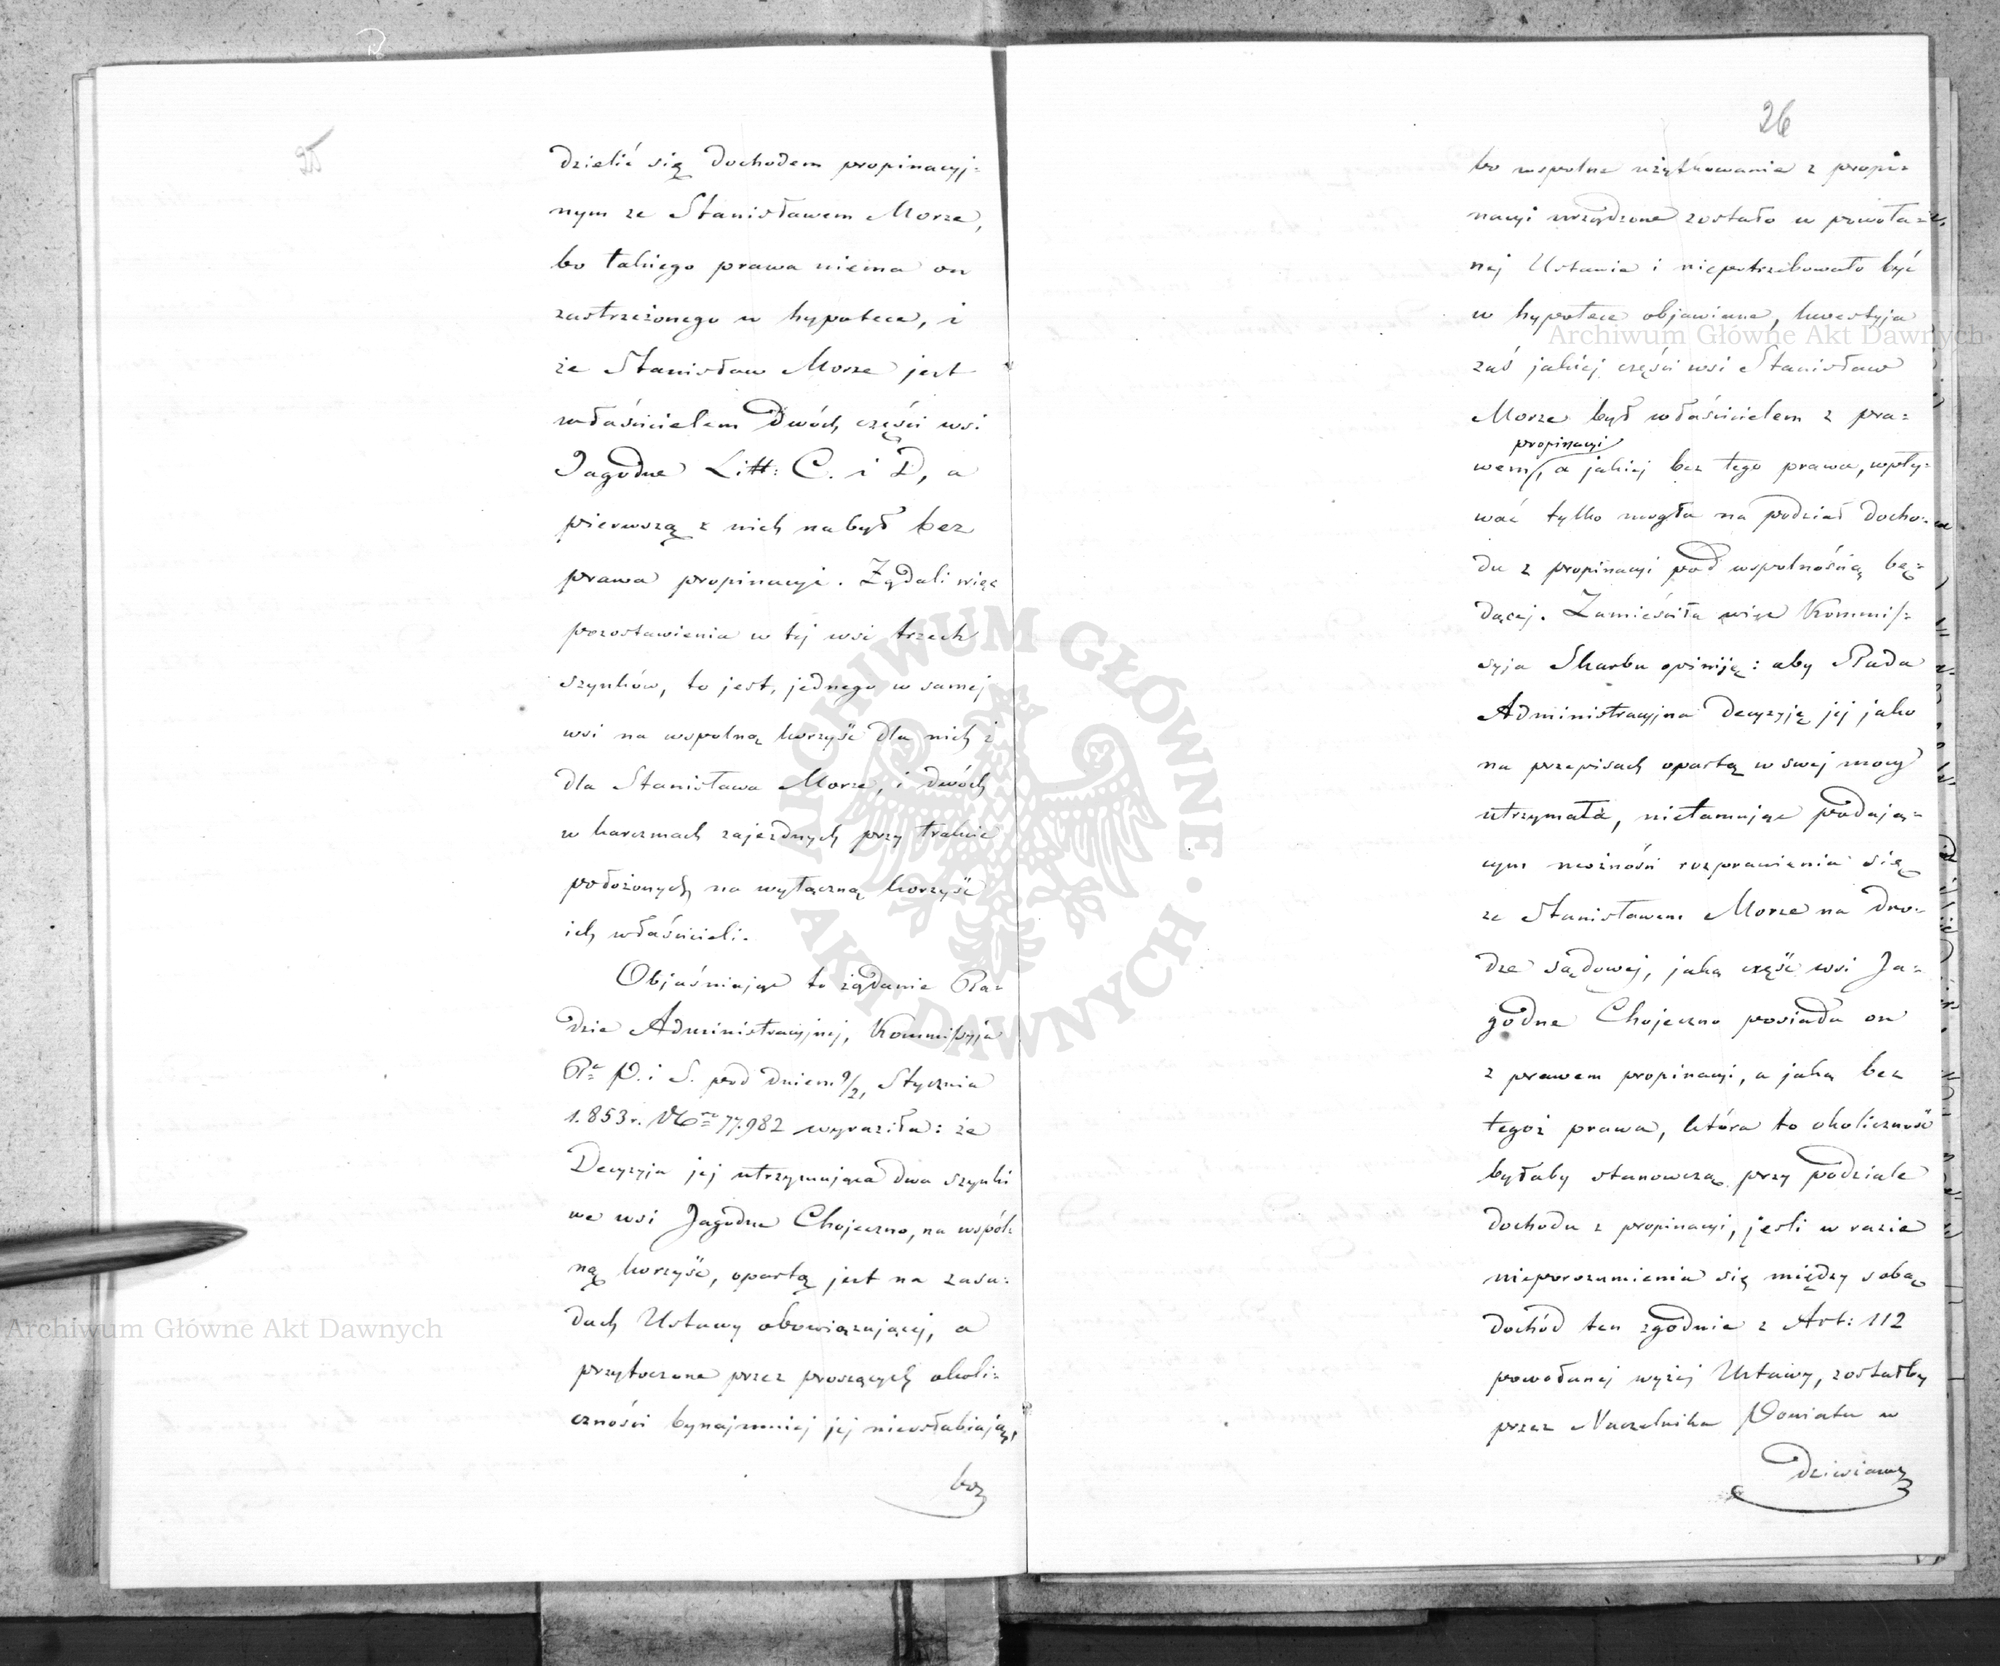 25
dzielić się dochodem propinacyj=
nym ze Stanisławem Morze,
bo takiego prawa niema on
zastrzeżonego w hypotece, i
że Stanisław Morze jest
właścicielem dwóch części wsi
Jagodne Litt: C. i D, a
pierwszą z nich nabył bez
prawa propinacyi. Żądali więc
pozostawienia w tej wsi trzech
szynków, to jest, jednego w samej
wsi na wspolną korzyść dla nich i
dla Stanisława Morze, i dwóch
w karczmach zajezdnych przy trakcie
położonych na wyłączną korzyść
ich właścicieli.
Objaśniając to żądanie Ra=
dzie Administracyjnej, Kommissyja
Rz. P. i S. pod dniem 9/21 Stycznia
1.853r. Nro 77.982 wyraziła: że
Decyzyja jej utrzymująca dwa szynki
we wsi Jagodne Chojeczno, na wspól=
ną korzyść, opartą jest na zasa=
dach Ustawy obowiązującej, a
przytoczone przez proszących okoli=
czności bynajmniej jej nieosłabiają,
bo
26
bo wspolne użytkowanie z propi=
nacyi urządzone zostało w powoła=
nej Ustawie i niepotrzebowało być
w hypotece objawiane, kwestyja
zaś jakiej części wsi Stanisław
Morze był właścicielem z pra=
propinacyi
wem, a jakiej bez tego prawa, wpły=
wać tylko mogła na podział docho=
du z propinacyi pod wspolnością bę=
dącej. Zamieściła więc Kommis=
syja Skarbu opiniją: aby Rada
Administracyjna decyzyją jej jako
na przepisach opartą w swej mocy
utrzymała, nietamując podają=
cym możności rozprawienia się
ze Stanisławem Morze na dro=
dze sądowej, jaką część wsi Ja=
godne Chojeczno posiada on
z prawem propinacyi, a jaką bez
tegoż prawa, która to okoliczność
byłaby stanowczą przy podziale
dochodu z propinacyi, jeśli w razie
nieporozumienia się między sobą
dochód ten zgodnie z Art: 112
powołanej wyżej Ustawy, zostałby
przez Naczelnika Powiatu w
dziwiawy
Archiwum Główne Akt Dawnych
Archiwum Główne Akt Dawnych
ARCHIWUM GŁÓWNE · AKT DAWNYCH ·